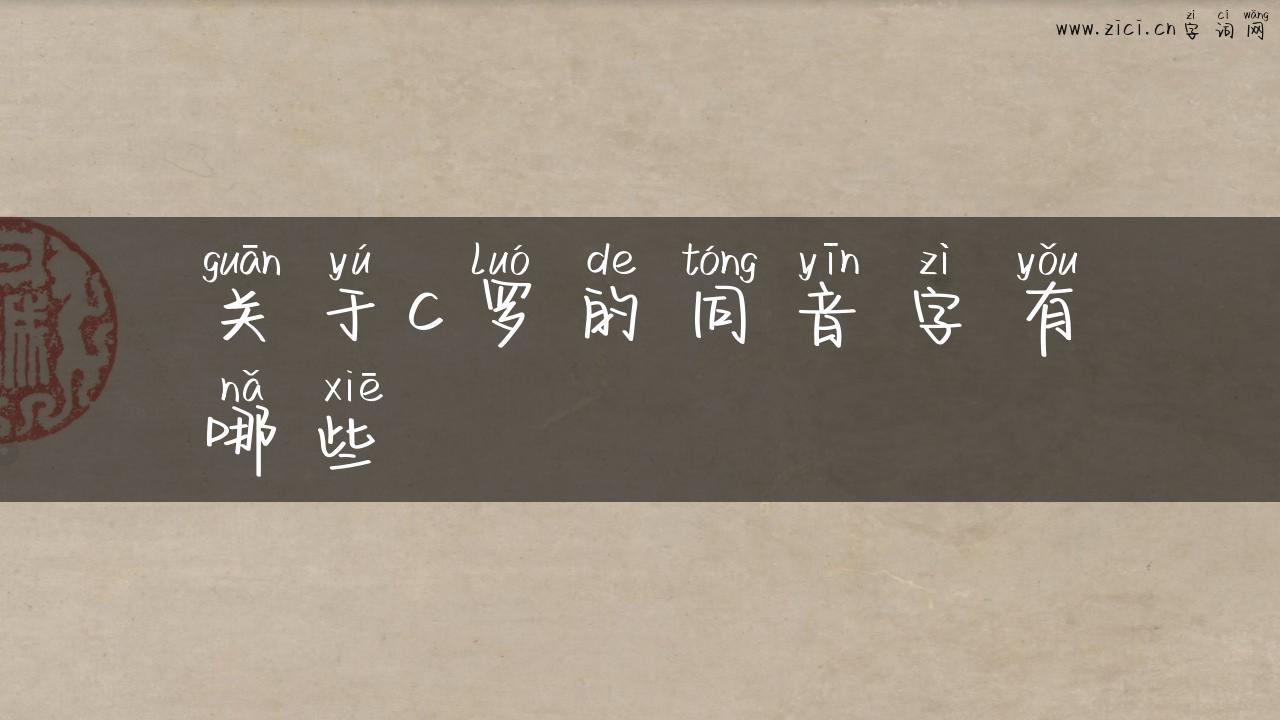 zì cí wǎng
www.zici.cn字词网
guān yú luó de tóng yīn zì yǒu
关于C罗的同音字有
nǎ xiē
哪些